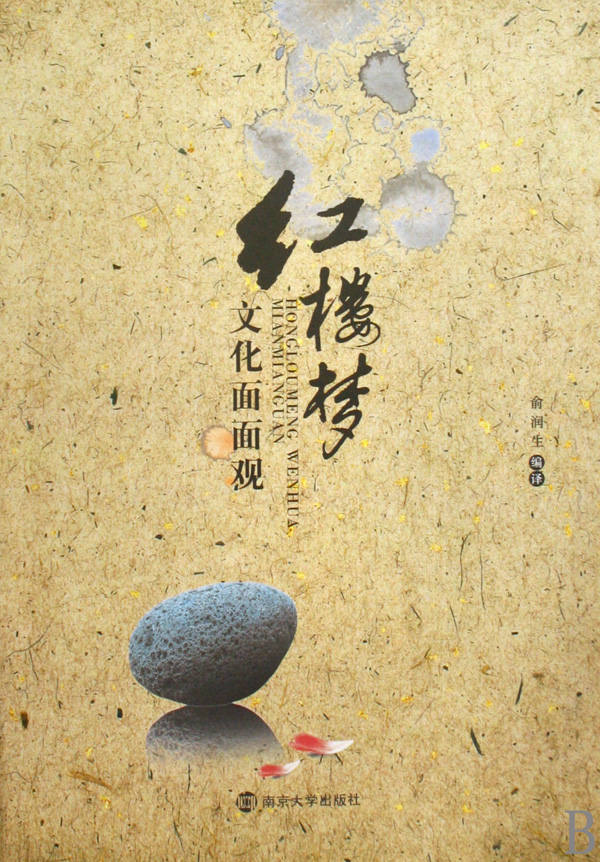 红楼梦
文化面面观
HONGLOUMENG WENHUA
MIANMIANGUAN
俞润生 编译
南京大学出版社
B